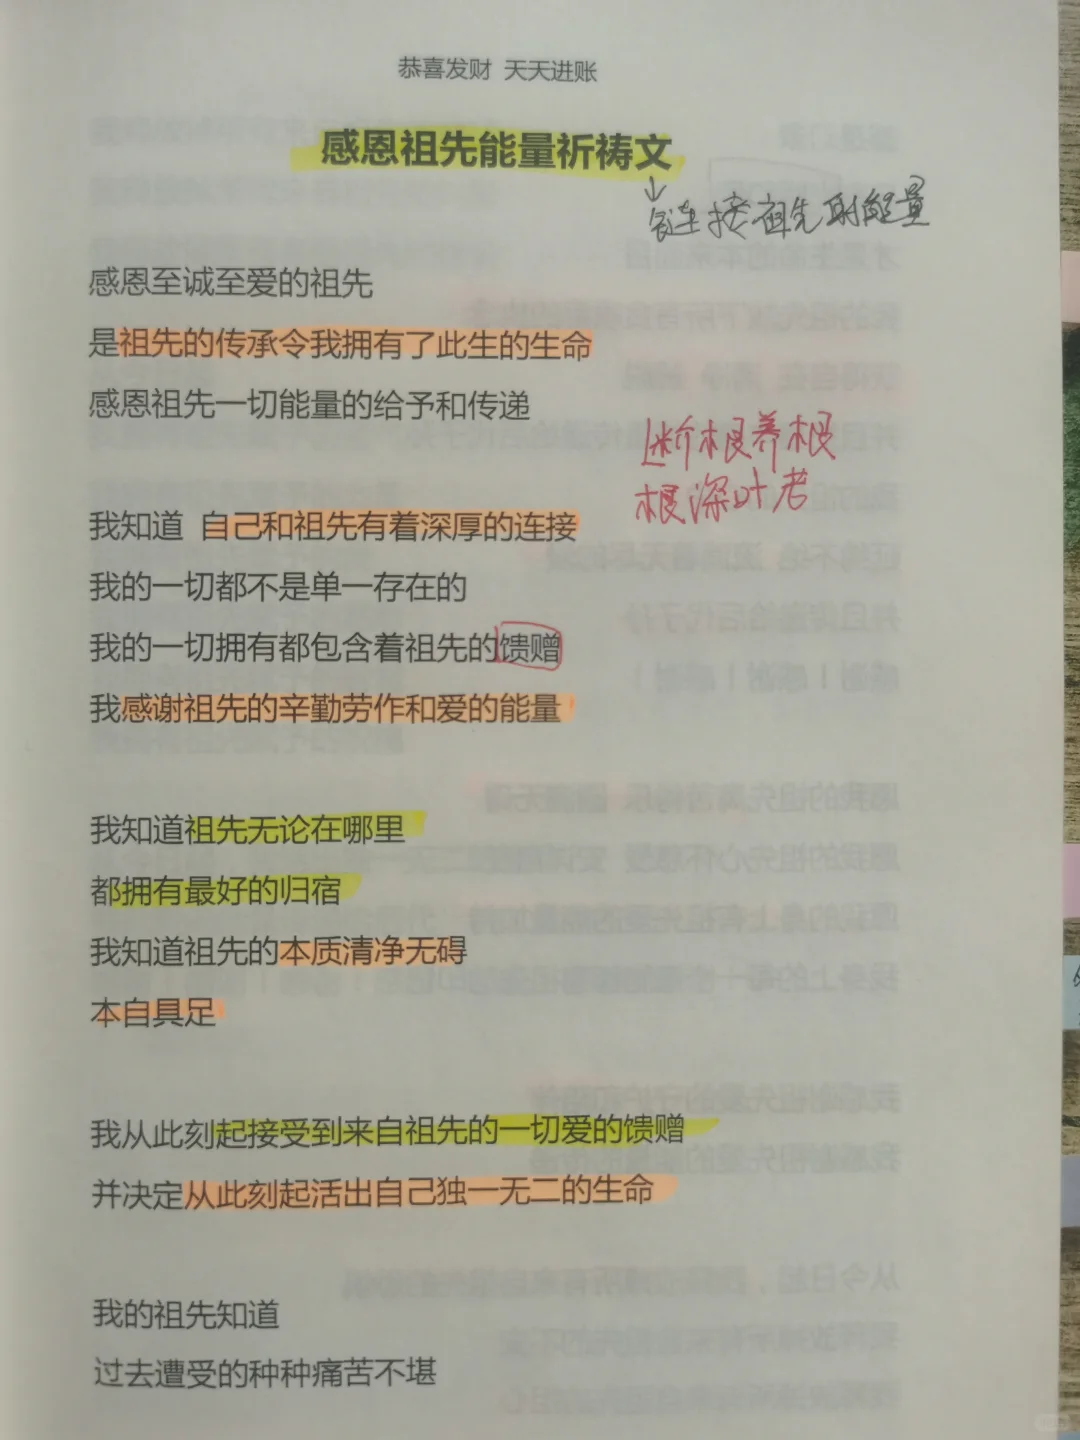 恭喜发财 天天进账
感恩祖先能量祈祷文
链接祖先的能量
感恩至诚至爱的祖先
是祖先的传承令我拥有了此生的生命
感恩祖先一切能量的给予和传递
断根养根
根深叶茂
我知道 自己和祖先有着深厚的连接
我的一切都不是单一存在的
我的一切拥有都包含着祖先的馈赠
我感谢祖先的辛勤劳作和爱的能量
我知道祖先无论在哪里
都拥有最好的归宿
我知道祖先的本质清净无碍
本自具足
我从此刻起接受到来自祖先的一切爱的馈赠
并决定从此刻起活出自己独一无二的生命
我的祖先知道
过去遭受的种种痛苦不堪